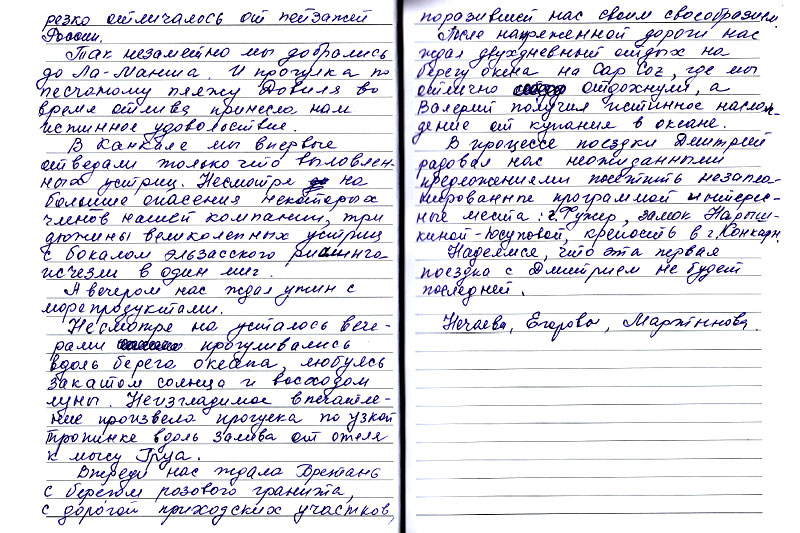 резко отличалось от пейзажей
России.
Так незаметно мы добрались
до Ла-Манша. И прогулка по
песчаному пляжу Довиля во
время отлива принесла нам
истинное удовольствие.
В Канкале мы впервые
отведали только что выловлен-
ных устриц. Несмотря на
большие опасения некоторых
членов нашей компании, три
дюжины великолепных устриц
с бокалом эльзасского рислинга
исчезли в один миг.
А вечером нас ждал ужин с
морепродуктами.
Несмотря на усталось вече-
рами прогуливались
вдоль берега океана, любуясь
закатом солнца и восходом
луны. Неизгладимое впечатле-
ние произвела прогулка по узкой
тропинке вдоль залива от отеля
к мысу Груа.
Впереди нас ждала Бретань
с берегом розового гранита,
с дорогой приходских участков,
поразившей нас своим своеобразием.
После напряженной дороги нас
ждал двухдневный отдых на
берегу океана на Сар Соz, где мы
отлично отдохнули, а
Валерий получил истинное наслаж-
дение от купания в океане.
В процессе поездки Дмитрий
радовал нас неожиданными
предложениями посетить незапла-
нированные программой интерес-
ные места: г. Фужер, замок Нарыш-
киной-Юсуповой, крепость в г. Конкарн.
Надеемся, что эта первая
поездка с Дмитрием не будет
последней.
Нечаева, Егоровы, Мартынова.